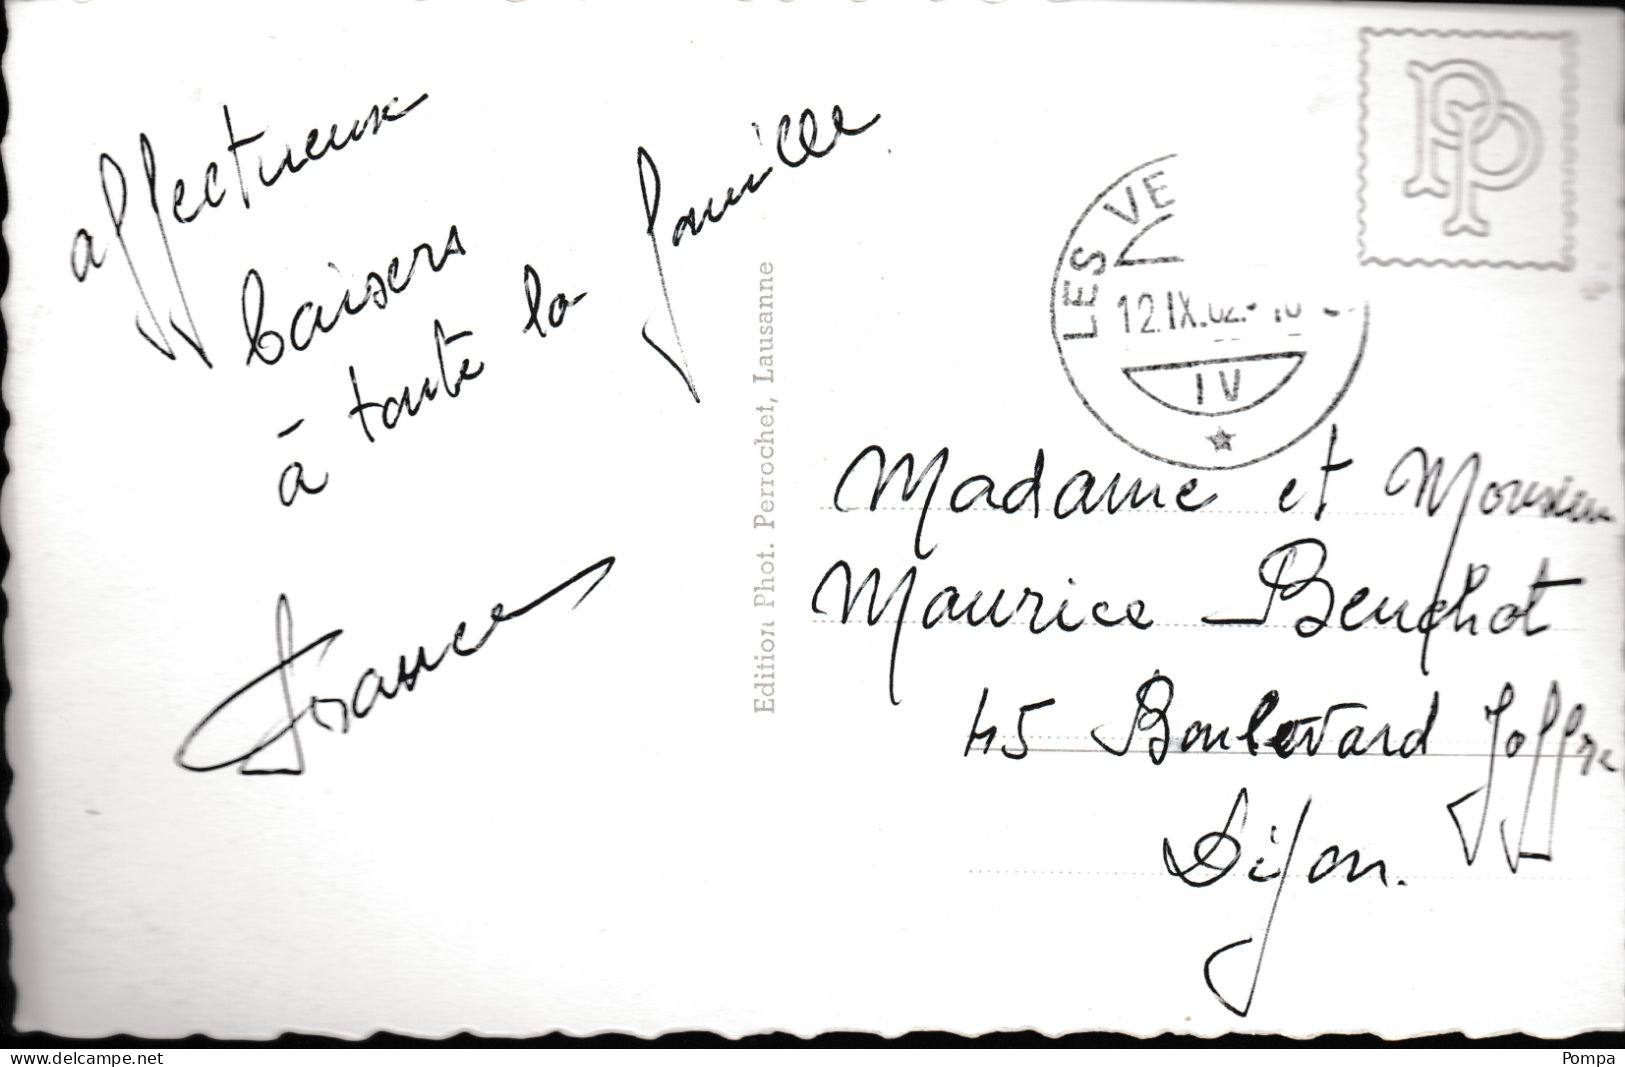 affectueux
baisers
à toute la famille
France
Edition Phot. Perrochet, Lausanne
PP
LES VE
12.IX.62.-10
IV
Madame et Monsieur
Maurice Beuchot
45 Boulevard Joffre
Dijon.
www.delcampe.net
Pompa